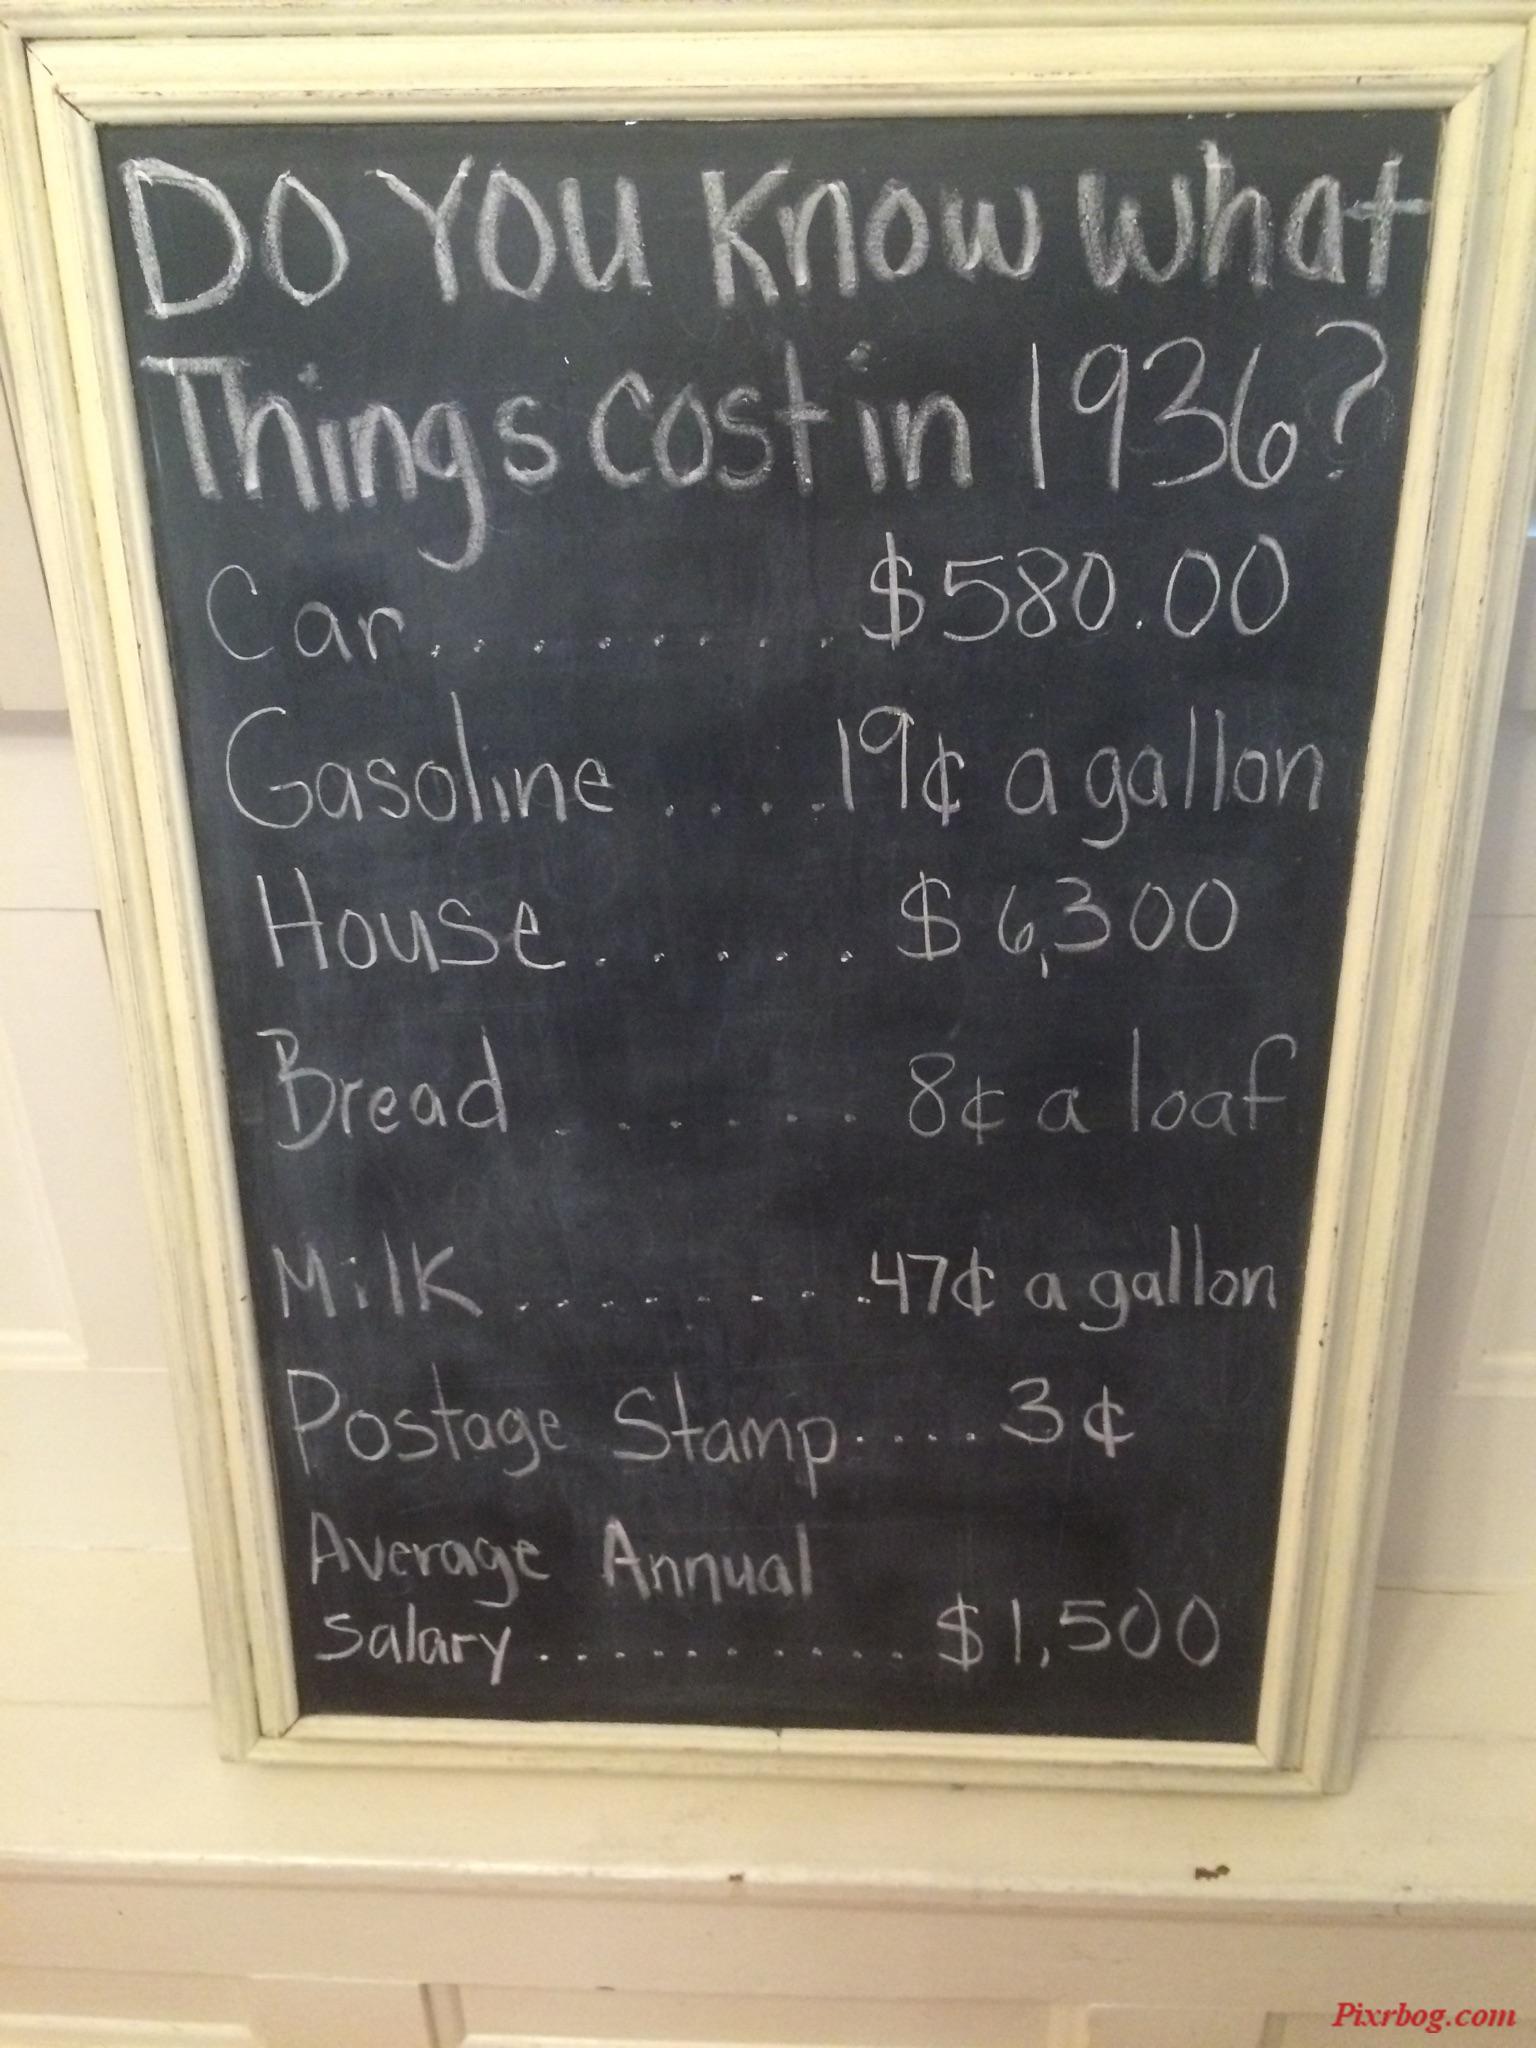 DO YOU Know what
Things cost in 1936?
Car.........$580.00
Gasoline ....19¢ a gallon
House..... $6,300
Bread ...... 8¢ a loaf
Milk ........47¢ a gallon
Postage Stamp....3¢
Average Annual
Salary...........$1,500
Pixrbog.com